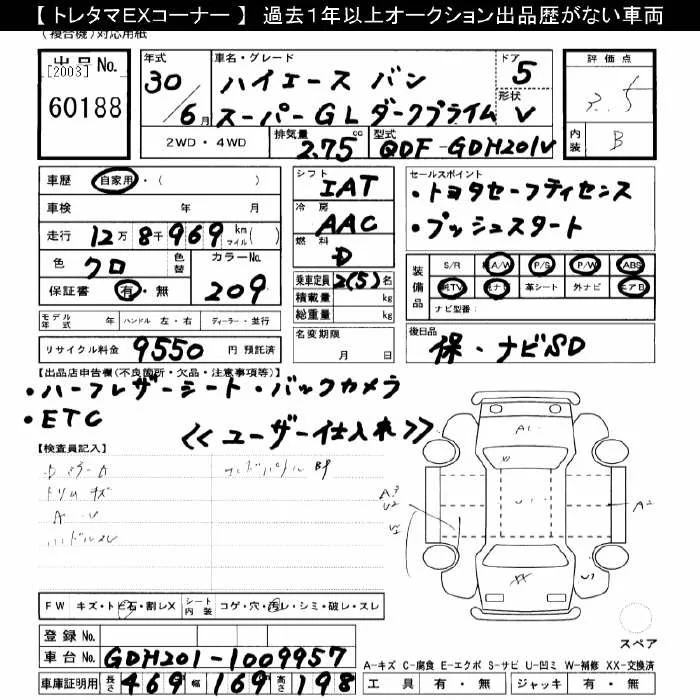 【 トレタマEXコーナー 】 過去１年以上オークション出品歴がない車両
(複合機)対応用紙
出品No.
[2003]
60188
年式
30/6月
車名・グレード
ハイエース バン
スーパーGL ダークプライム
ドア
5
形状
V
評価点
3.5
内装
B
2WD・4WD
排気量
2.75 cc
型式
QDF-GDH201V
車歴 自家用・( )
車検 年 月
走行 12万 8千 969 km マイル( )
色 クロ
色替
カラーNo.
209
保証書 有・無
シフト
IAT
冷房
AAC
燃料
D
乗車定員 2(5)名
積載量 kg
総重量 kg
名変期限
月 日
セールスポイント
・トヨタセーフティセンス
・プッシュスタート
装備品
S/R 純A/W P/S P/W ABS
純TV 純ナビ 革シート 外ナビ エアB
ナビ型番:
モデル年式 年 ハンドル 左・右 ディーラー・並行
リサイクル料金 9550 円 預託済
後日品
保・ナビSD
【出品店申告欄(不良箇所・欠品・注意事項等)】
・ハーフレザーシート・バックカメラ
・ETC
<<ユーザー仕入れ>>
【検査員記入】
トリム キズ
A U
A1
W
U1
A3
U2
A2
XX
U1
FW キズ・トビ石・割レX
シート内装 コゲ・穴・汚レ・シミ・破レ・スレ
登録No.
車台No. GDH201-1009957
車庫証明用 長さ 469 幅 169 高さ 198
スペア
A-キズ C-腐食 E-エクボ S-サビ U-凹ミ W-補修 XX-交換済
工具 有・無 ジャッキ 有・無